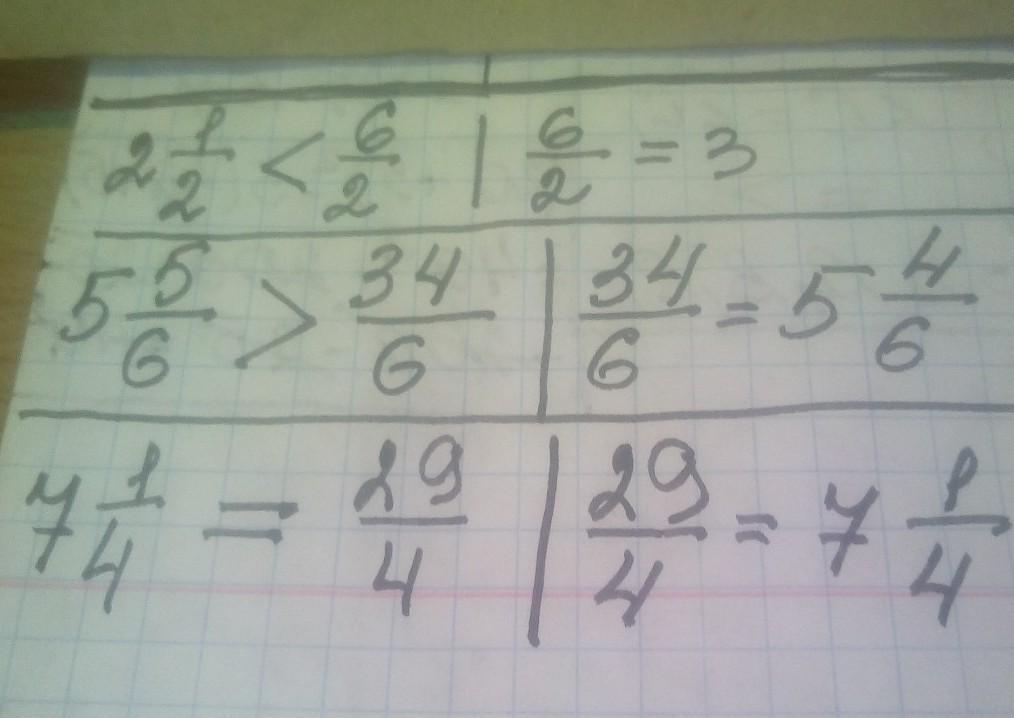 2 1/2 < 6/2 | 6/2 = 3
5 5/6 > 34/6 | 34/6 = 5 4/6
7 1/4 = 29/4 | 29/4 = 7 1/4